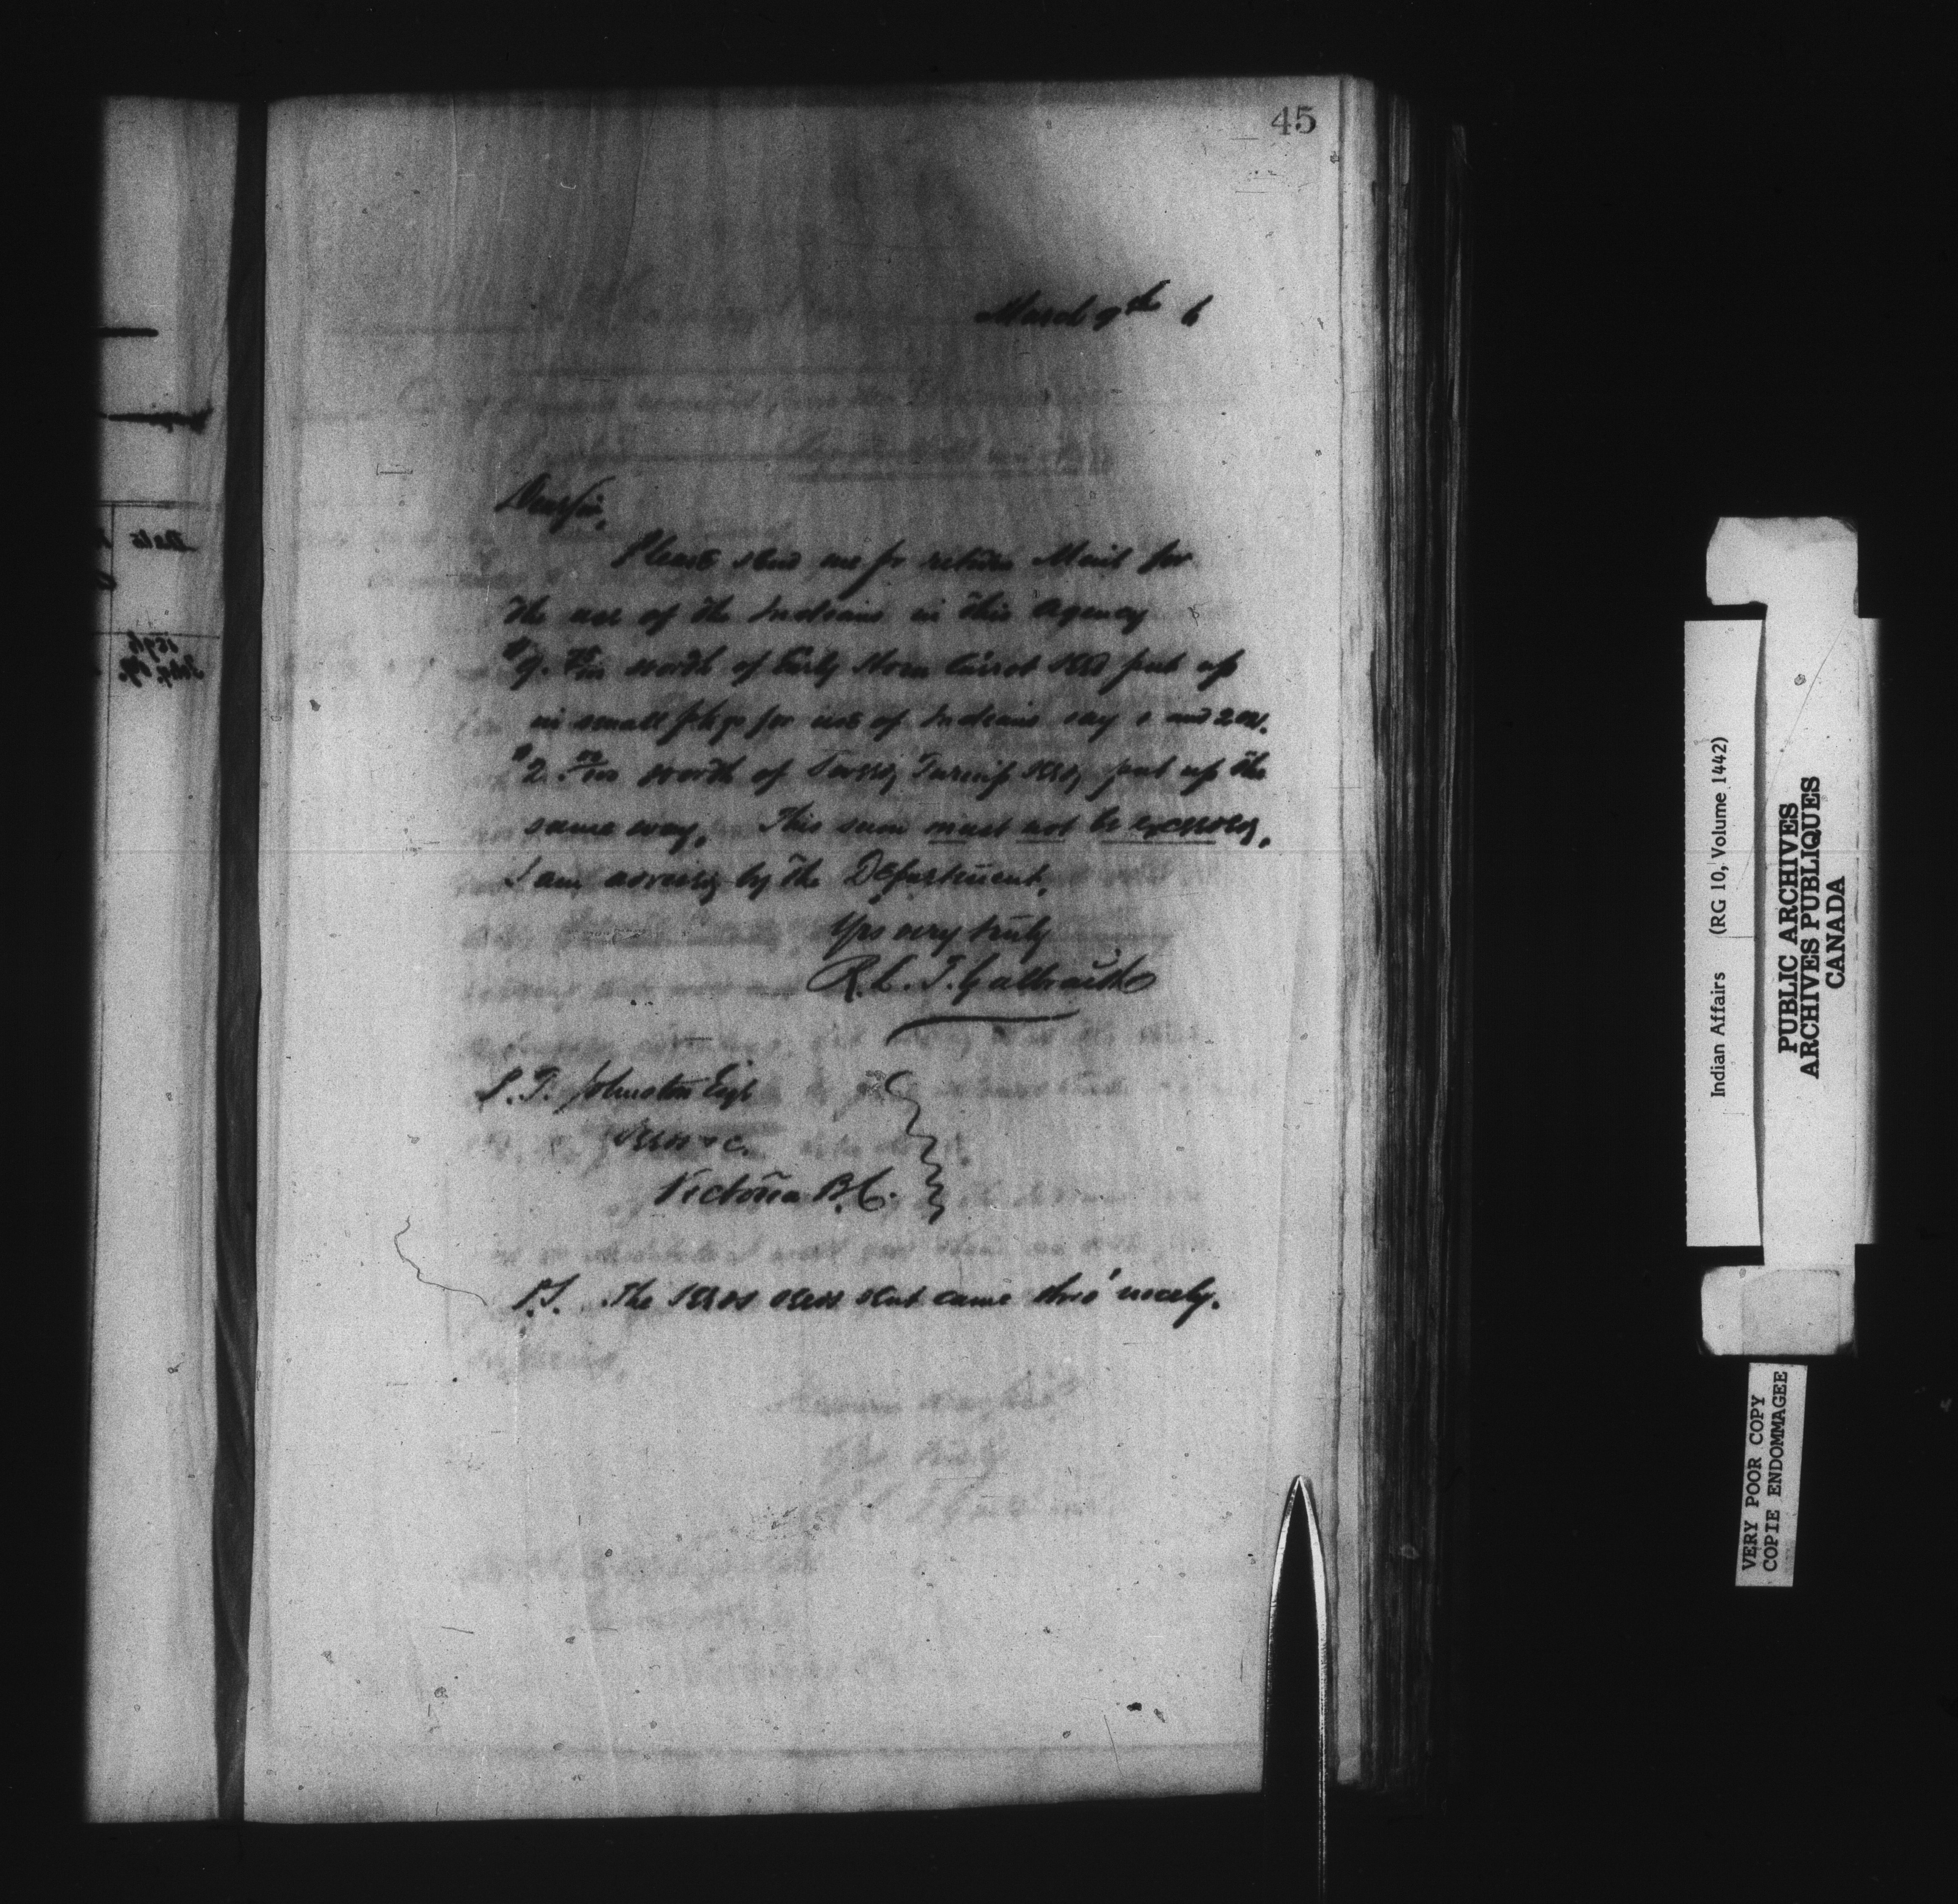 45
March 9th 6
Dear Sir,
Please send me pr return Mail for
the use of the Indians in this Agency
$9. 75/100 worth of Early Horn Carrot seed put up
in small pkgs for use of Indians say 1 and 2 oz.
$2. /100 worth of Swede Turnip seed put up the
same way. This sum must not be exceeded,
I am advised by the Department.
Yrs very truly
R. L. T. Galbraith
Johnston Esqr
Seeds &c.
Victoria B.C.
P.S. The seeds sent came thro' nicely.
Date
1896
Indian Affairs (RG 10, Volume 1442)
PUBLIC ARCHIVES
ARCHIVES PUBLIQUES
CANADA
VERY POOR COPY
COPIE ENDOMMAGEE